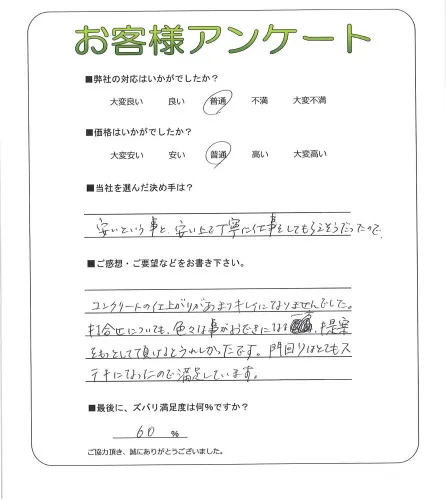 お客様アンケート
■弊社の対応はいかがでしたか？
大変良い 良い 普通 不満 大変不満
■価格はいかがでしたか？
大変安い 安い 普通 高い 大変高い
■当社を選んだ決め手は？
安いという事と、安い上で丁寧に仕事をしてもらえそうだったので
■ご感想・ご要望などをお書き下さい。
コンクリートの仕上がりがあまりキレイになりませんでした。
打合せについても、色々な事がおできになる 提案
をもっとして頂けるとうれしかったです。門回りはとてもス
テキになったので満足しています。
■最後に、ズバリ満足度は何％ですか？
60 ％
ご協力頂き、誠にありがとうございました。